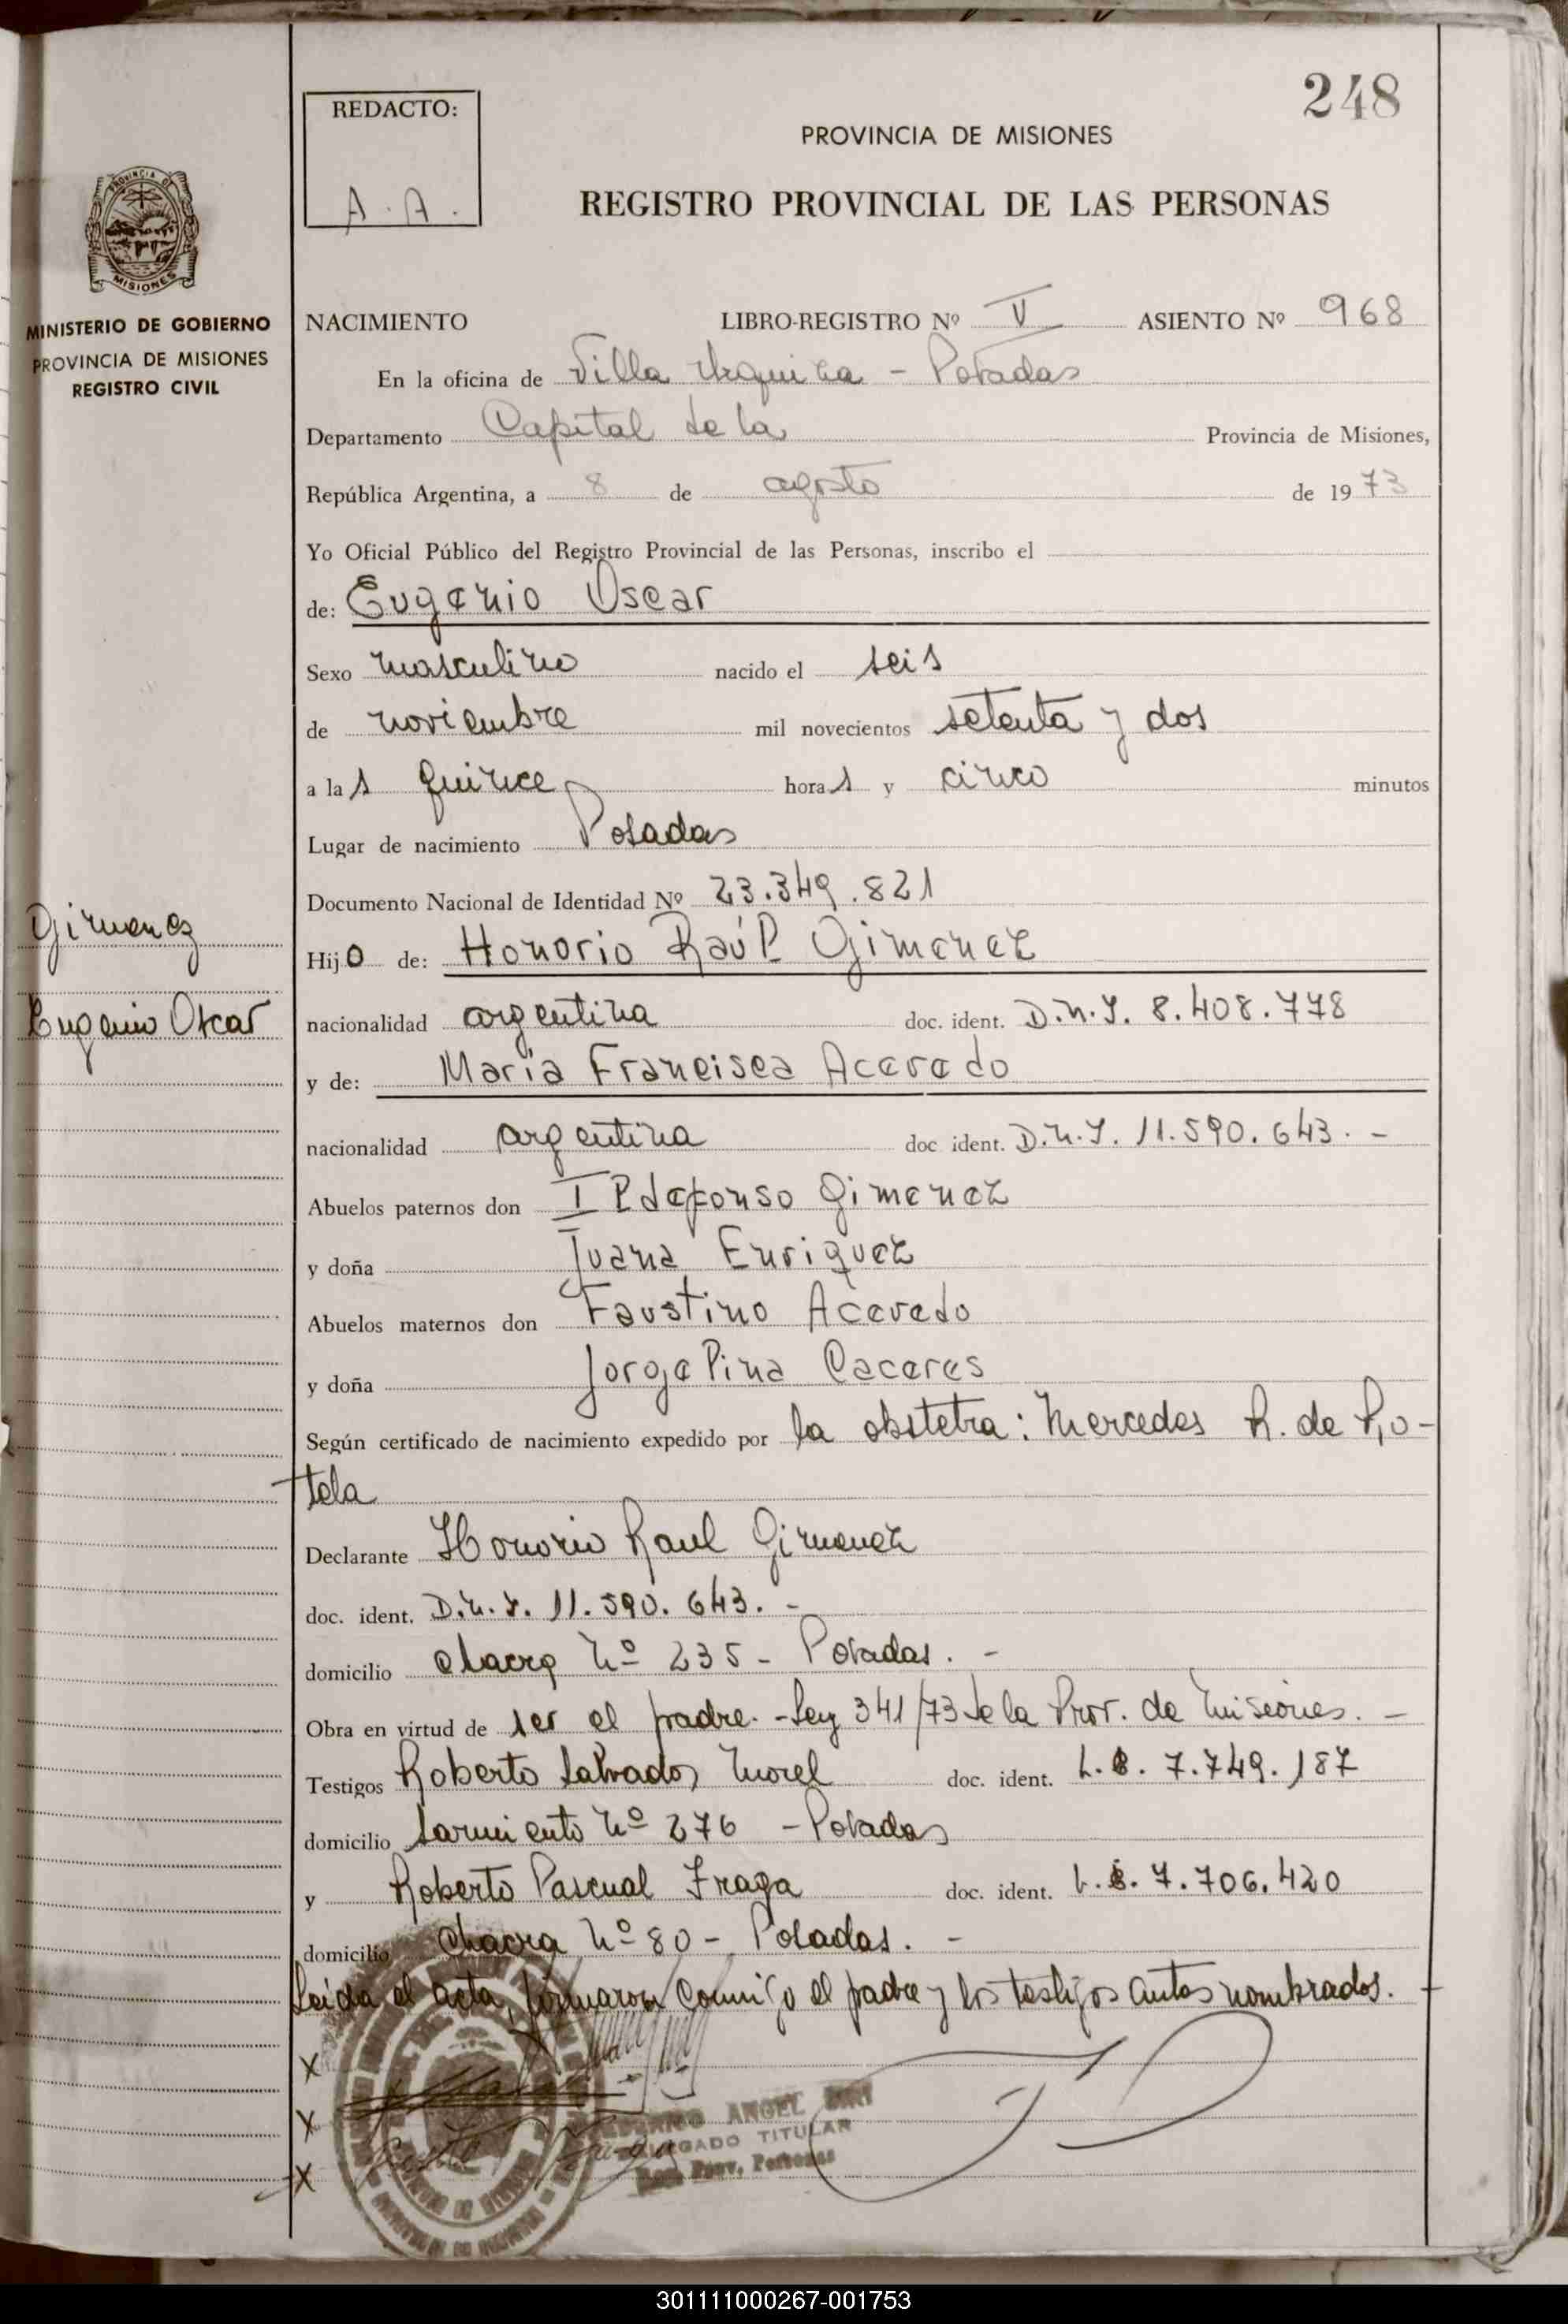 248
REDACTO:
A. A.
PROVINCIA DE MISIONES
REGISTRO PROVINCIAL DE LAS PERSONAS
PROVINCIA DE
MISIONES
MINISTERIO DE GOBIERNO
PROVINCIA DE MISIONES
REGISTRO CIVIL
NACIMIENTO LIBRO-REGISTRO Nº V ASIENTO Nº 968
En la oficina de Villa Urquiza - Posadas
Departamento Capital de la Provincia de Misiones,
República Argentina, a 8 de agosto de 1973
Yo Oficial Público del Registro Provincial de las Personas, inscribo el
de: Eugenio Oscar
Sexo masculino nacido el seis
de noviembre mil novecientos setenta y dos
a las quince horas y cinco minutos
Lugar de nacimiento Posadas
Documento Nacional de Identidad Nº 23.349.821
Gimenez
Hijo de: Honorio Raúl Gimenez
Eugenio Oscar
nacionalidad argentina doc. ident. D.N.I. 8.408.778
y de: María Francisca Acevedo
nacionalidad argentina doc ident. D.N.I. 11.590.643. -
Abuelos paternos don Ildefonso Gimenez
y doña Juana Enriquez
Abuelos maternos don Faustino Acevedo
y doña Jorgelina Caceres
Según certificado de nacimiento expedido por la obstetra: Mercedes R. de Rio-
tela
Declarante Honorio Raul Gimenez
doc. ident. D.N.I. 11.590.643. -
domicilio chacra Nº 235 - Posadas. -
Obra en virtud de ser el padre. - Ley 341/73 de la Prov. de Misiones. -
Testigos Roberto Salvador Morel doc. ident. L.E. 7.749.187
domicilio Sarmiento Nº 276 - Posadas
y Roberto Pascual Fraga doc. ident. L.E. 7.706.420
domicilio chacra Nº 80 - Posadas. -
Leída el acta, firmaron conmigo el padre y los testigos antes nombrados. -
X
X
X
ANGEL
TITULAR
Prov. Personas
301111000267-001753